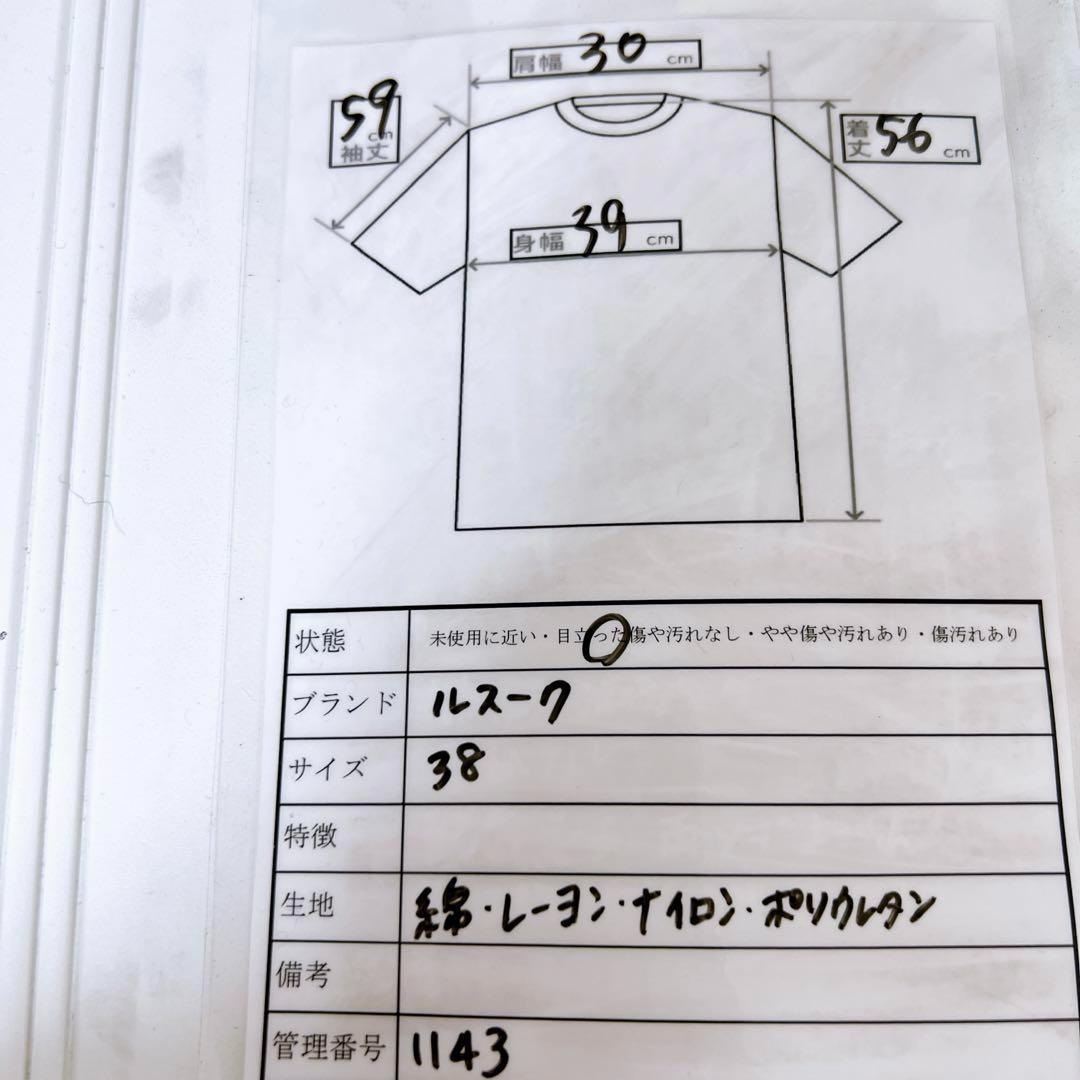 肩幅 30 cm
59 cm
袖丈
着丈 56 cm
身幅 39 cm
状態 未使用に近い・目立った傷や汚れなし・やや傷や汚れあり・傷汚れあり
ブランド ルスーク
サイズ 38
特徴
生地 綿・レーヨン・ナイロン・ポリウレタン
備考
管理番号 1143